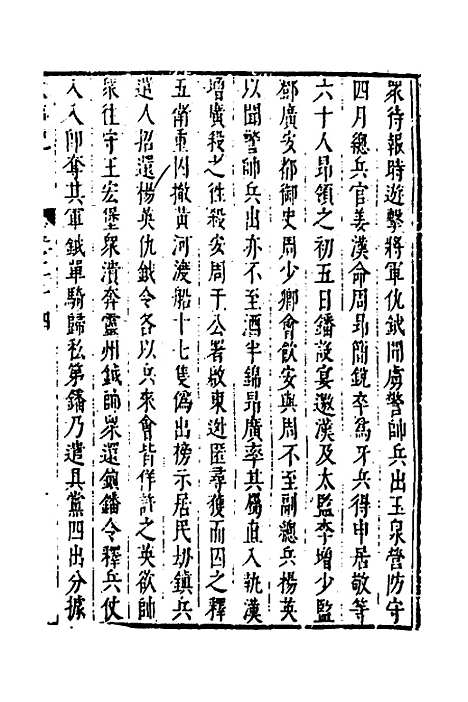 衆待報時遊擊將軍仇鉞聞虜警帥兵出玉泉營防守
四月總兵官姜漢命周昂簡銳卒爲牙兵得申居敬等
六十人昂領之初五日鐇設宴邀漢及太監李增少監
鄧廣安都御史周少卿會飲安與周不至副總兵楊英
以聞警帥兵出亦不至酒半錦昂廣率其屬直入執漢
增廣殺之徃殺安周于公署啟東迯匿尋獲而囚之釋
五衛重囚撤黃河渡船十七隻僞出榜示居民刼鎮兵
遣人招還楊英仇鉞令各以兵來會皆佯許之英欲帥
衆往守王宏堡衆潰奔靈州鉞帥衆還鎮鐇令釋兵仗
入入卽奪其軍鉞單騎歸私第鐇乃遣其黨四出分據
二十四